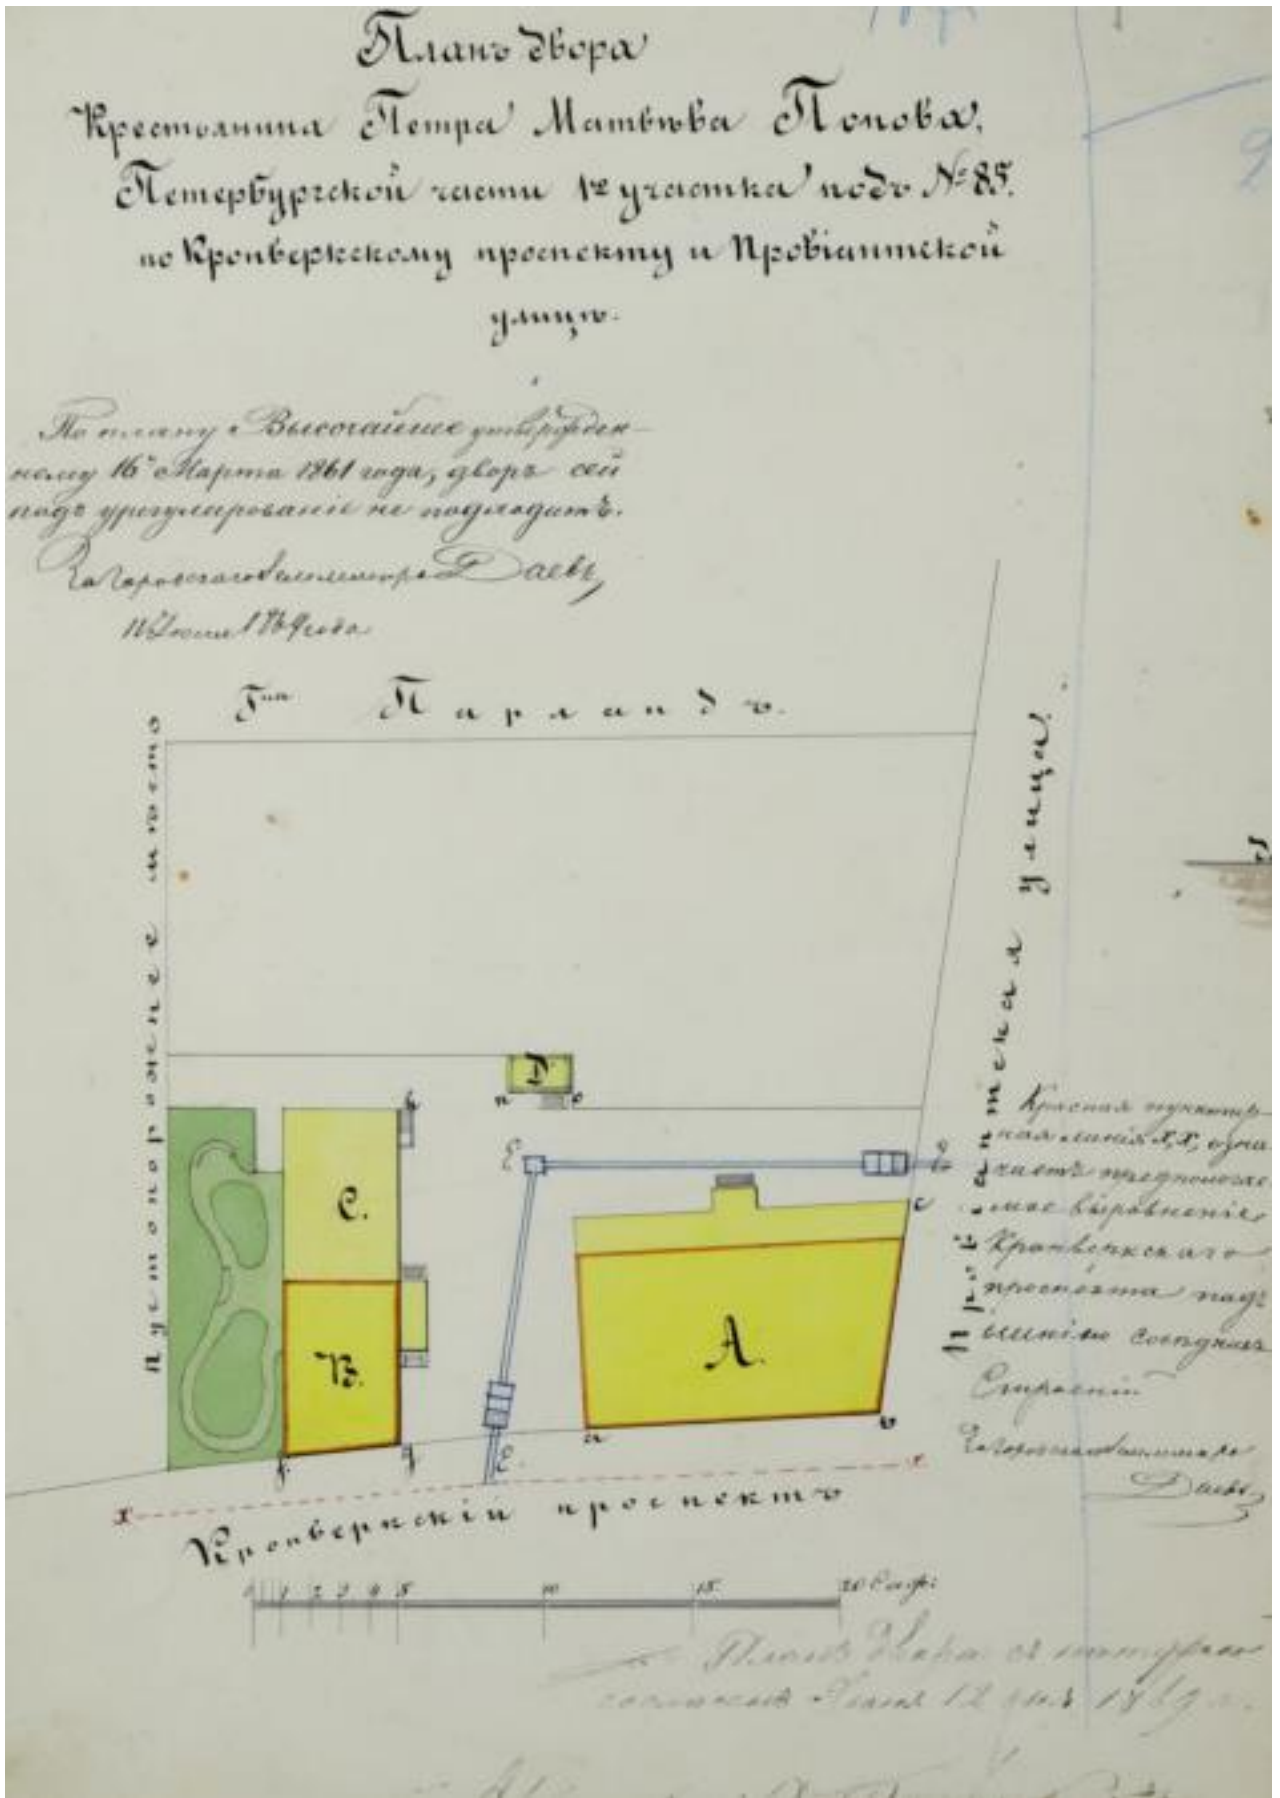 Планъ двора
Крестьянина Петра Матвѣева Попова,
Петербургской части 1го участка подъ № 85.
по Кронверкскому проспекту и Провіантской
улицѣ.
По плану Высочайше утвержден-
ному 16го Марта 1861 года, дворъ сей
подъ урегулированіе не подходитъ.
За Городскаго Землемѣра Даевъ,
1869 года
Гна Парландъ.
Пустопорожнее мѣсто
Провіантская улица.
D
n o
h
E E
C.
c
A.
B.
a b
f g
E.
Красная пунктир-
ная линія x, x, озна-
чаетъ предполагае-
мое выровненіе
Кронверкскаго
проспекта подъ
линію сосѣднихъ
Строеній
За Городскаго Землемѣра
Даевъ
x x
Кронверкскій проспектъ
1 2 3 4 5 10 15 20 Саж:
Планъ двора съ натурою
Іюня 12 дня 1869 г.